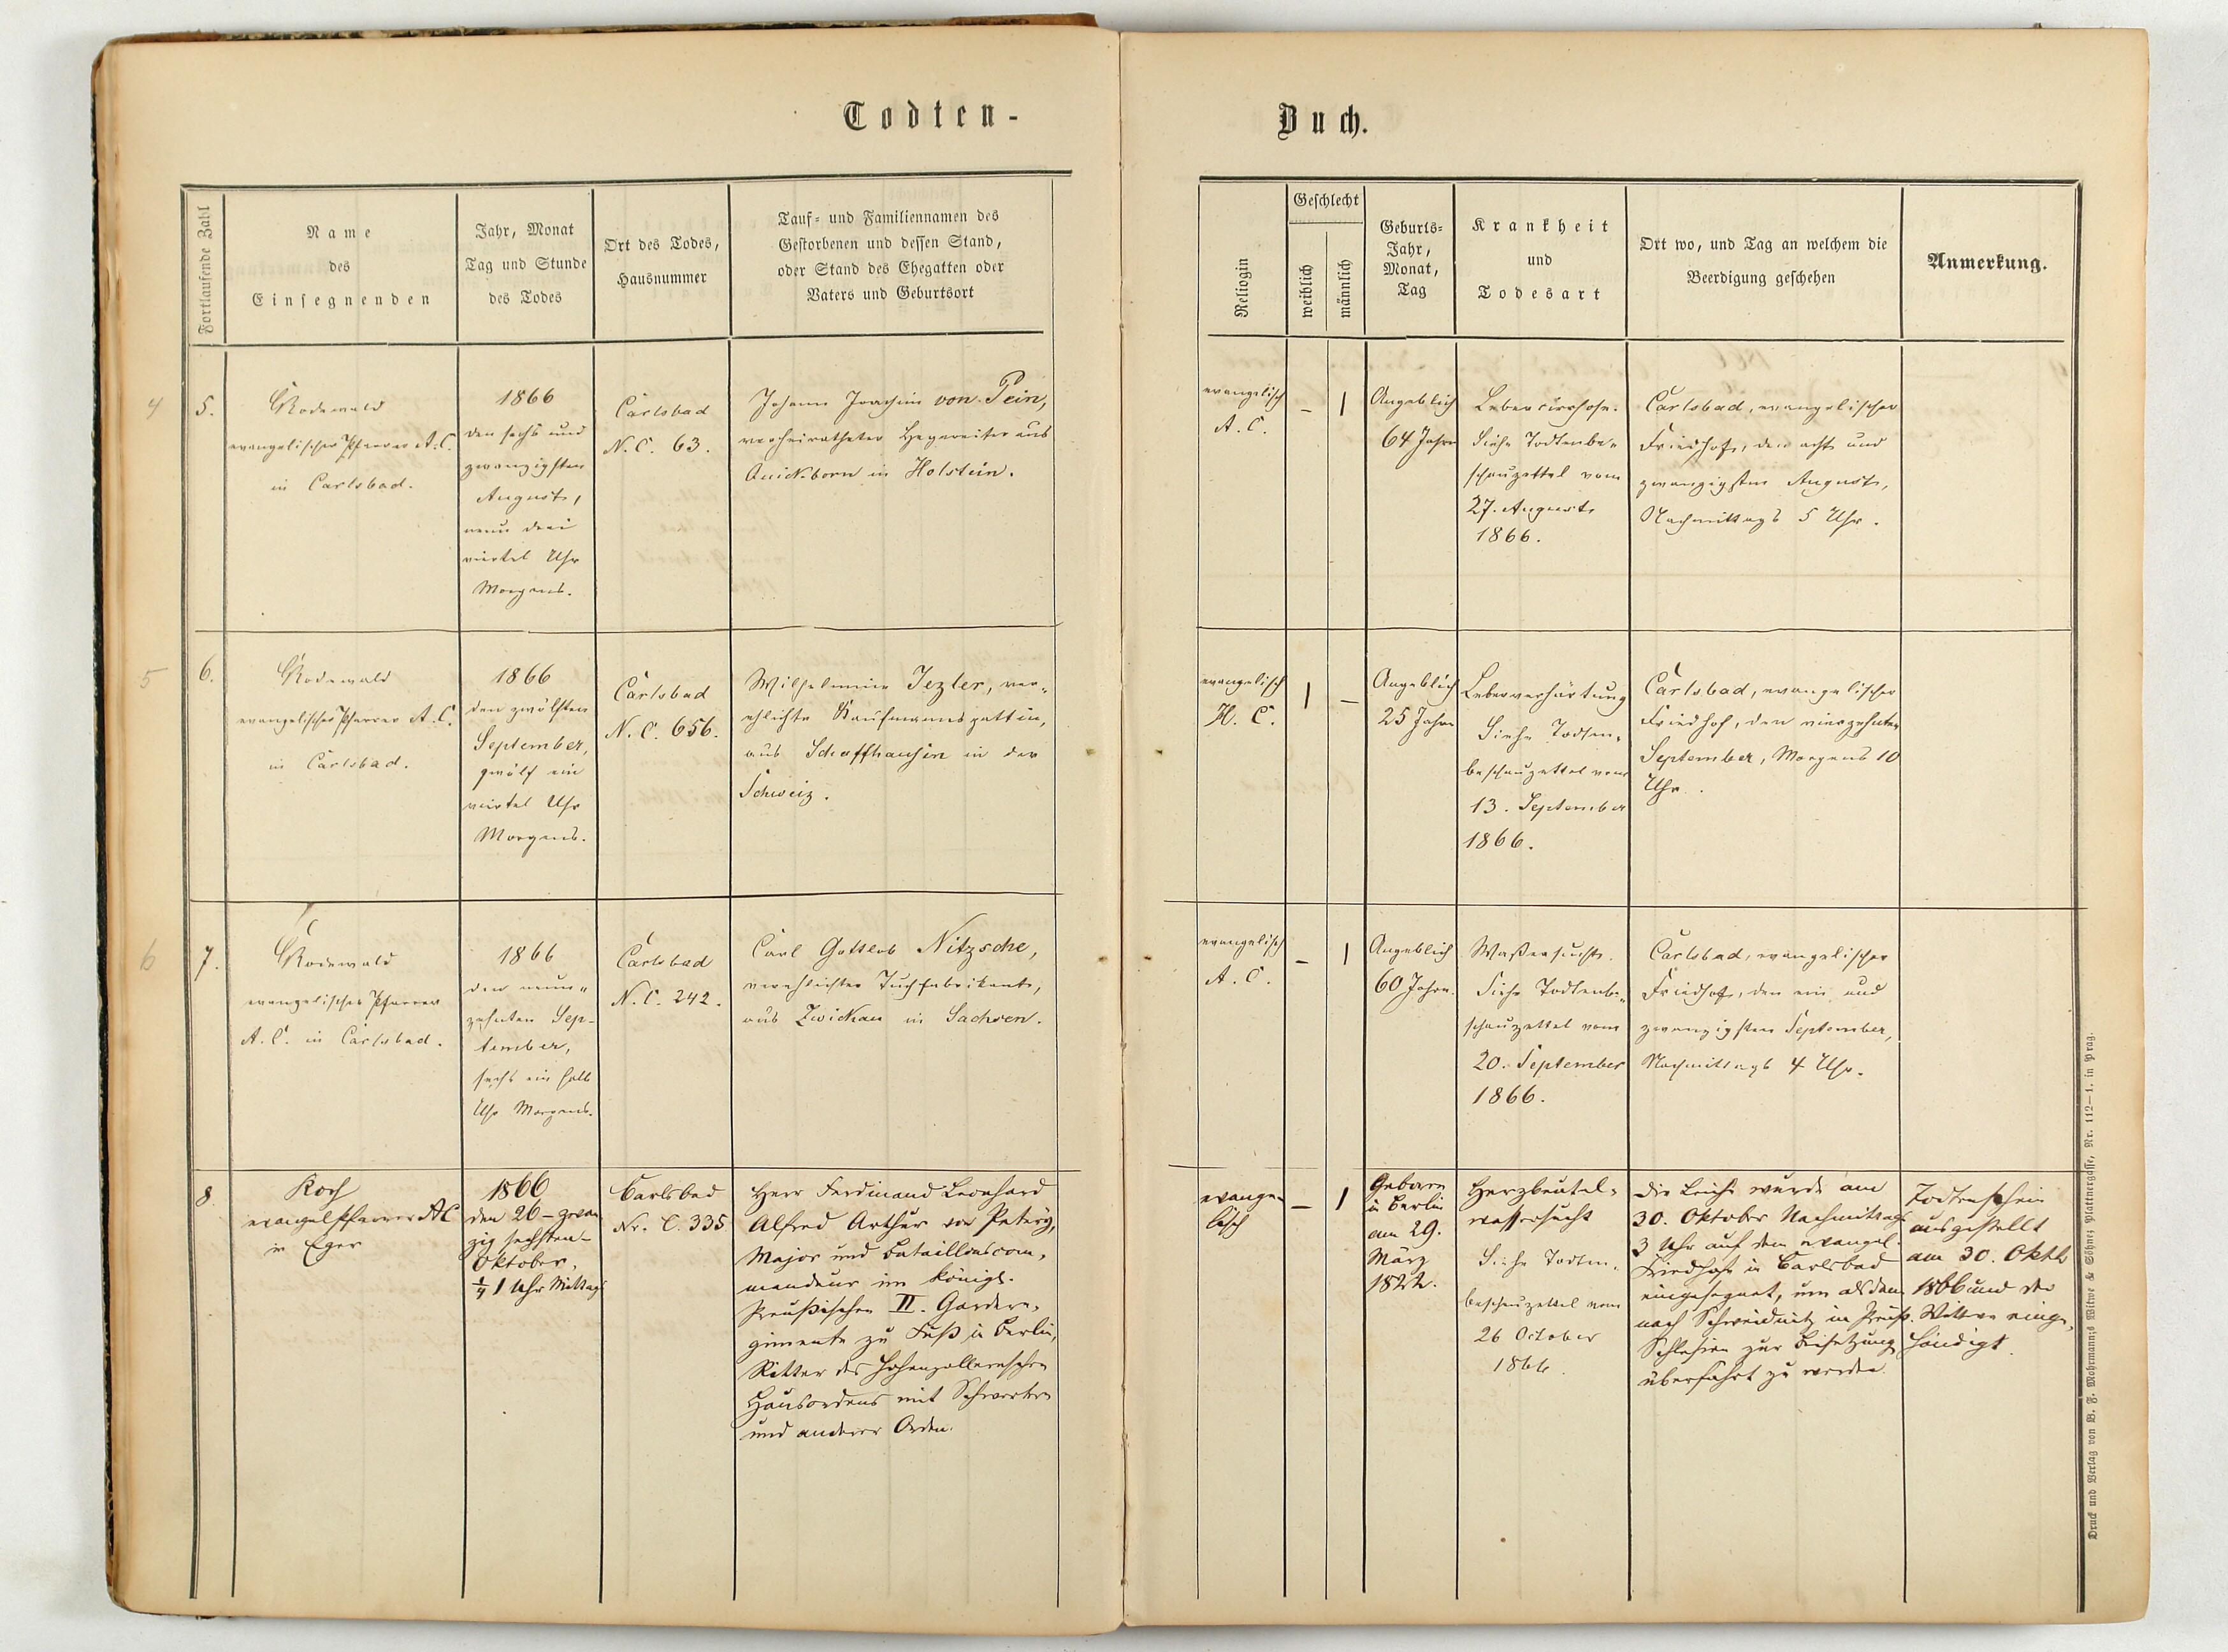 Todten-
Buch.
Fortlaufende Zahl
Name
des
Einsegnenden
Jahr, Monat
Tag und Stunde
des Todes
Ort des Todes,
Hausnummer
Tauf- und Familiennamen des
Gestorbenen und dessen Stand,
oder Stand des Ehegatten oder
Vaters und Geburtsort
Religion
Geschlecht
weiblich
männlich
Geburts-
Jahr,
Monat,
Tag
Krankheit
und
Todesart
Ort wo, und Tag an welchem die
Beerdigung geschehen
Anmerkung.
4
5.
Rodewald
evangelischer Pfarrer A. C.
in Carlsbad.
1866
den sechs und
zwanzigsten
August,
neun drei
viertel Uhr
Morgens.
Carlsbad
N. C. 63.
Johann Joachim von Pein,
verheiratheter Hegereiter aus
Quickborn in Holstein.
evangelisch
A. C.
–
1
Angeblich
64 Jahre
Lebercirrhose.
Siehe Todtenbe-
schauzettel vom
27. August
1866.
Carlsbad, evangelischer
Friedhof, den acht und
zwanzigsten August,
Nachmittags 5 Uhr.
5
6.
Rodewald
evangelischer Pfarrer A. C.
in Carlsbad.
1866
den zwölften
September,
zwölf ein
viertel Uhr
Morgens.
Carlsbad
N. C. 656.
Wilhelmine Jezler, ver-
ehlichte Kaufmannsgattin,
aus Schaffhausen in der
Schweiz.
evangelisch
H. C.
1
–
Angeblich
25 Jahre
Leberverhärtung
Siehe Todten-
beschauzettel vom
13. September
1866.
Carlsbad, evangelischer
Friedhof, den vierzehnten
September, Morgens 10
Uhr.
6
7.
Rodewald
evangelischer Pfarrer
A. C. in Carlsbad.
1866
den neun-
zehnten Sep-
tember,
sechs ein halb
Uhr Morgens.
Carlsbad
N. C. 242.
Carl Gottlob Nitzsche,
verehlichter Tuchfabrikant,
aus Zwickau in Sachsen.
evangelisch
A. C.
–
1
Angeblich
60 Jahre.
Waßersucht.
Siehe Todtenbe-
schauzettel vom
20. September
1866.
Carlsbad, evangelischer
Friedhof, den ein und
zwanzigsten September,
Nachmittags 4 Uhr.
8.
Koch
evangel Pfarrer AC
in Eger
1866
den 26 – zwan
zig sechsten –
Oktober,
¼ 1 Uhr Mittag
Carlsbad
Nr. C. 335
Herr Ferdinand Leonhard
Alfred Arthur von Petery,
Major und Bataillonscom-
mandeur im Königl.
Preußischen II. Gardere-
gimente zu Fuß in Berlin,
Ritter des Hohenzollernschen
Hausordens mit Schwertern
und anderer Orden.
evange-
lisch
–
1
Geboren
in Berlin
am 29.
März
1822.
Herzbeutel-
wassersucht
Siehe Todten-
beschauzettel vom
26 October
1866.
Die Leiche wurde am
30. Oktober Nachmittags
3 Uhr auf dem evangel.
Friedhofe in Carlsbad
eingesegnet, um alsdann
nach Schweidnitz in Preuß.
Schlesien zur Beisetzung
überfahrt zu werden.
Todtenschein
ausgestellt
am 30. Oktb
1866 und der
Wittwe einge-
händigt.
Druck und Verlag von B. F. Mohrmann's Witwe & Söhne; Plattnergasse, Nr. 112—1. in Prag.